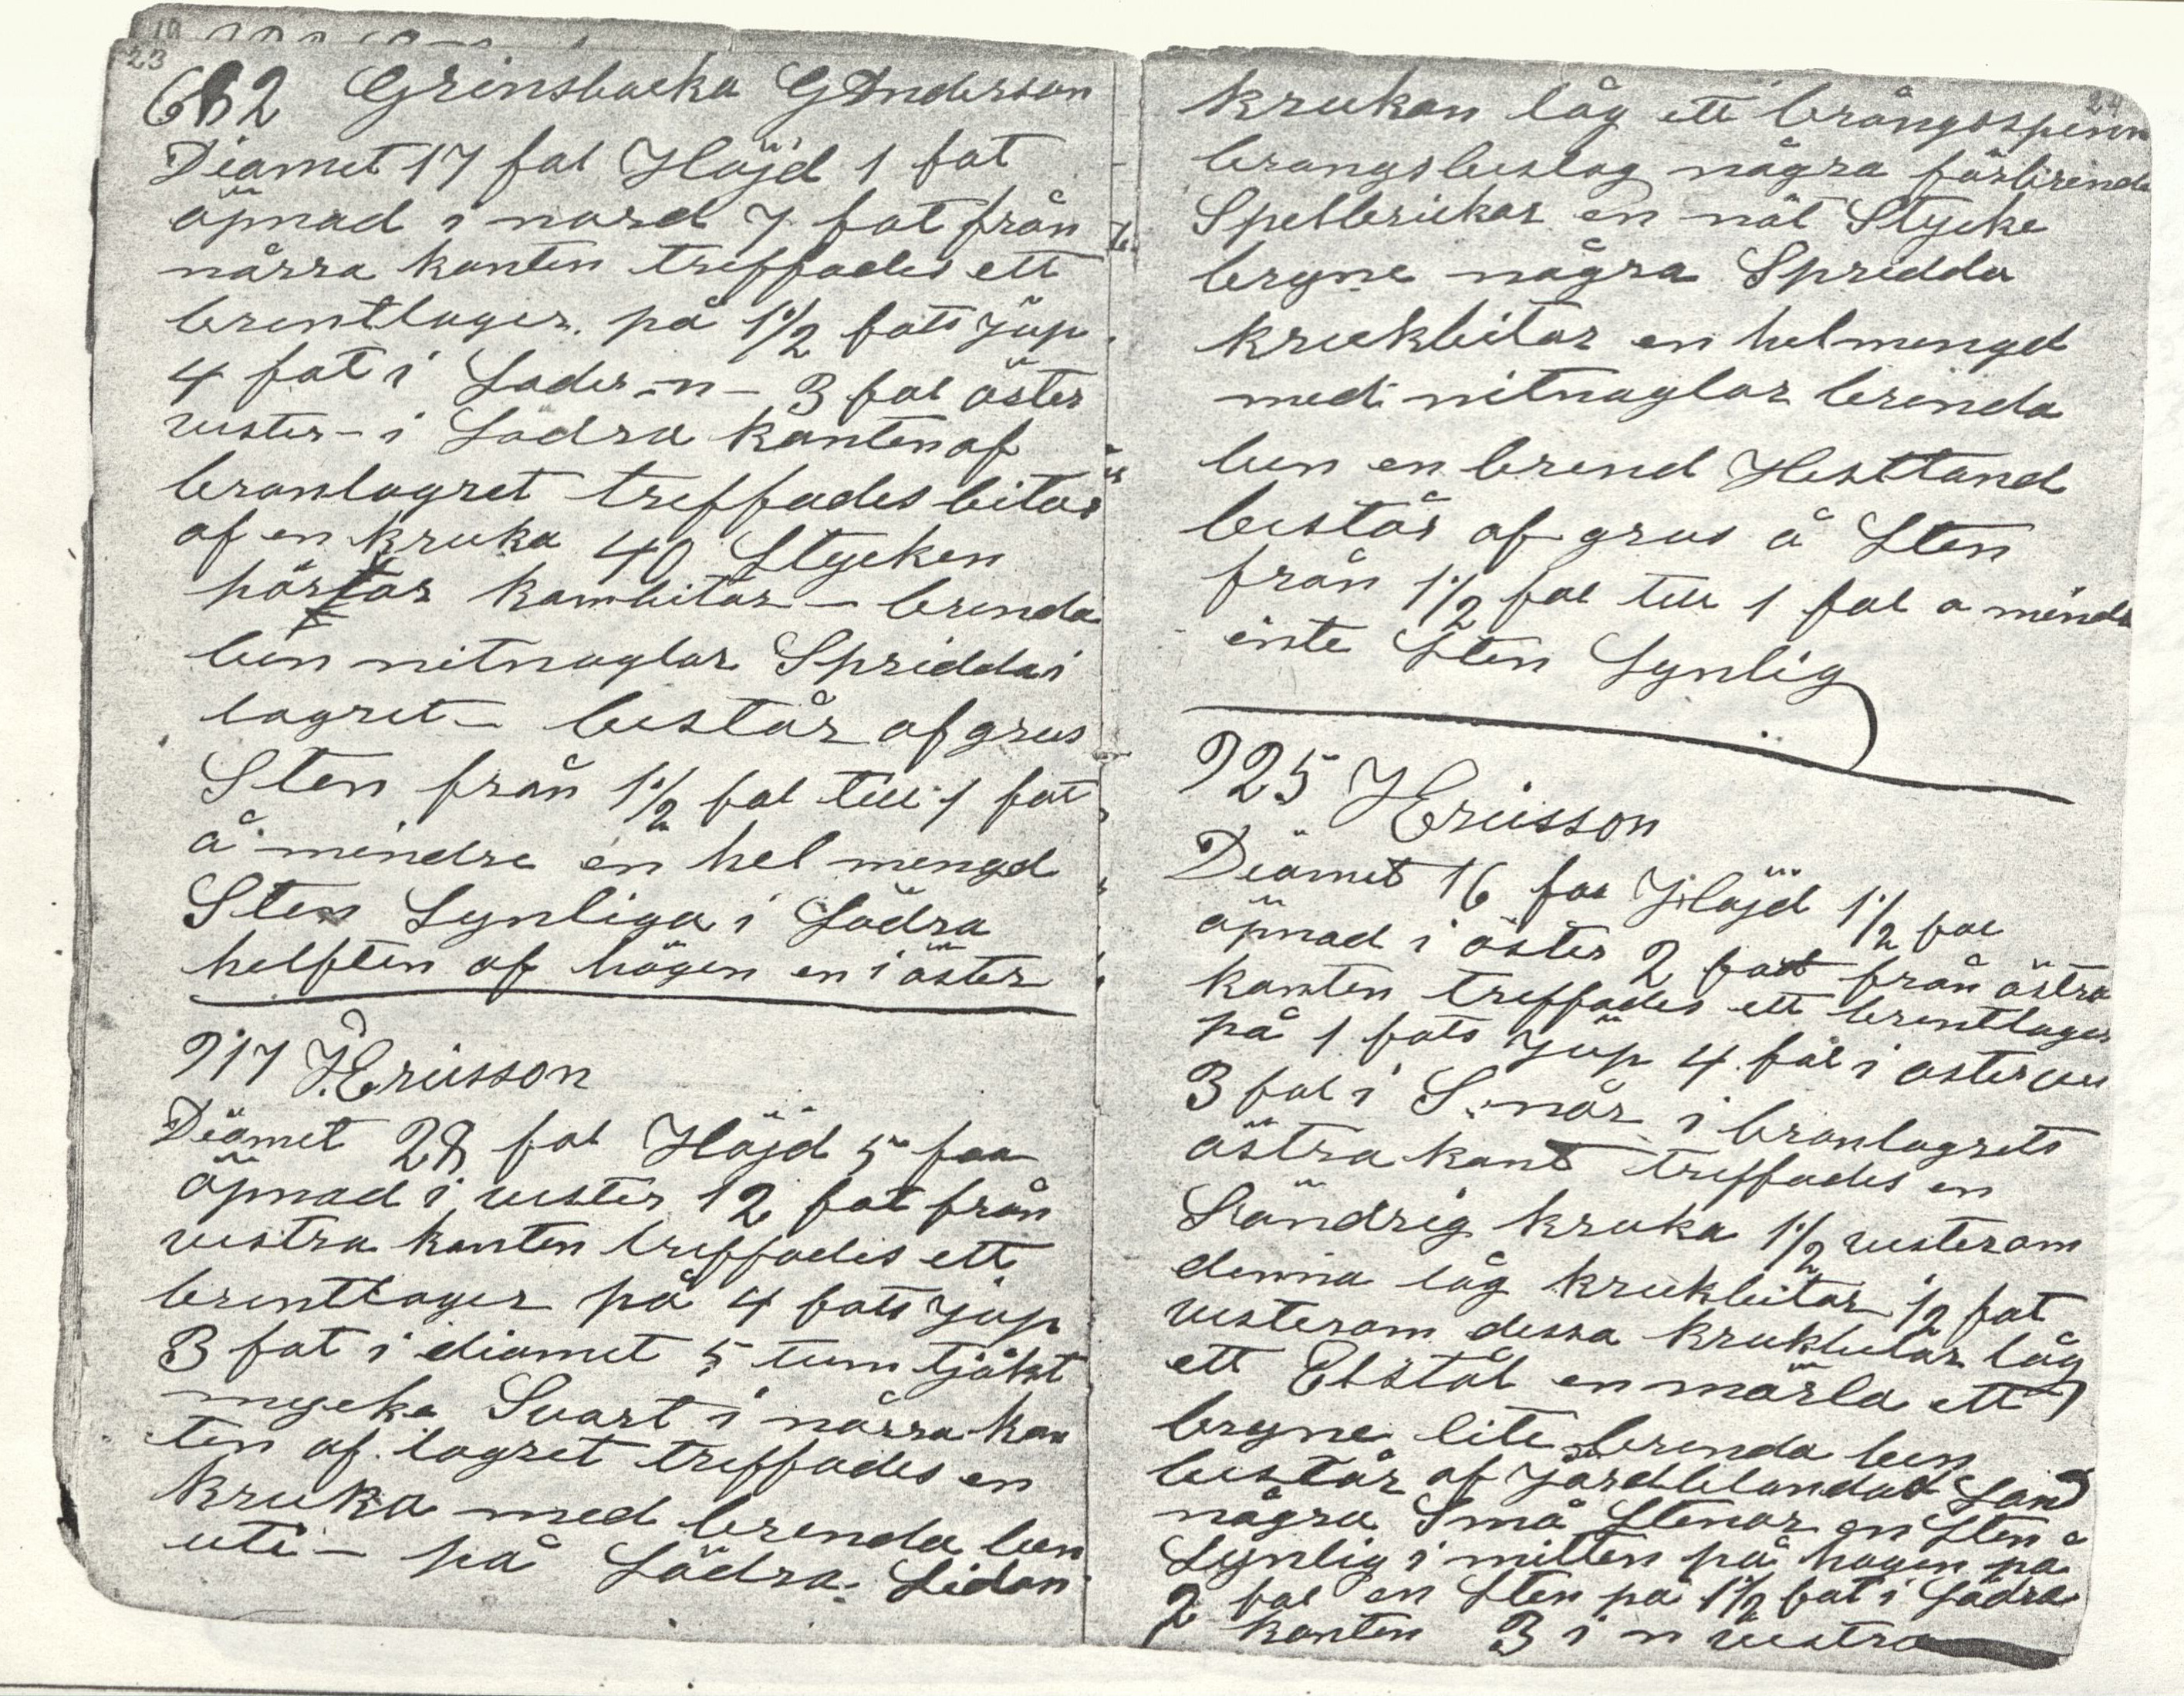 23
682 Grinsbacka GAnderson
Diamet 17 fot Höjd 1 fot
öpnad i nord 7 fot från
nårra kanten treffades ett
brentlager på 1 1/2 fots jup
4 fot i Söder -n- 3 fot öster
vester - i Södra kanten af
branlagret treffades bitar
af en kruka 40 Stycken
pörtor kambitar - brenda
ben nitnaglar Spridda i
lagret - består af grus
Sten från 1 1/2 fot till 1 fot
å mindre en hel mengd
Sten Synliga i Södra
helften af högen en i öster
917 J.Ericsson
Diämet 28 fot Höjd 5 fot
öpnad i vester 12 fot från
vestra kanten treffades ett
brentlager på 4 fots jup
3 fot i diamet 5 tum tjåkt
mycke Svart i nårra kan
ten af lagret treffades en
kruka med brenda ben
uti - på Södra Sidan
24
krukan låg ett brångsspenn
brangsbeslag några förbrend
Spelbrickor en nöt Stycke
bryne några Spredda
krukbitar en hel mengd
med nitnaglar brinda
ben en brend Hesttand
består af grus å Sten
från 1 1/2 fot till 1 fot a mindr
inte Sten Synlig
925 J Ericsson
Diämet 16 fot Höjd 1 1/2 fot
öpnad i öster 2 fot från östra
kanten treffades ett brentlager
på 1 fots jup 4 fot i oster ves
3 fot i S. nör i branlagrets
östra kant treffades en
Sländrig kruka 1 1/2 vesterom
denna låg krukbitar 1/2 fot
vesterom dessa krukbitar låg
ett Elstål en märla ett
bryne lite brenda ben
består af jordblandad Sand
några Små Stenar en Sten
Synlig i mitten på hogen på
2 fot en Sten på 1 1/2 fot i Södra
kanten 3 i n vestra